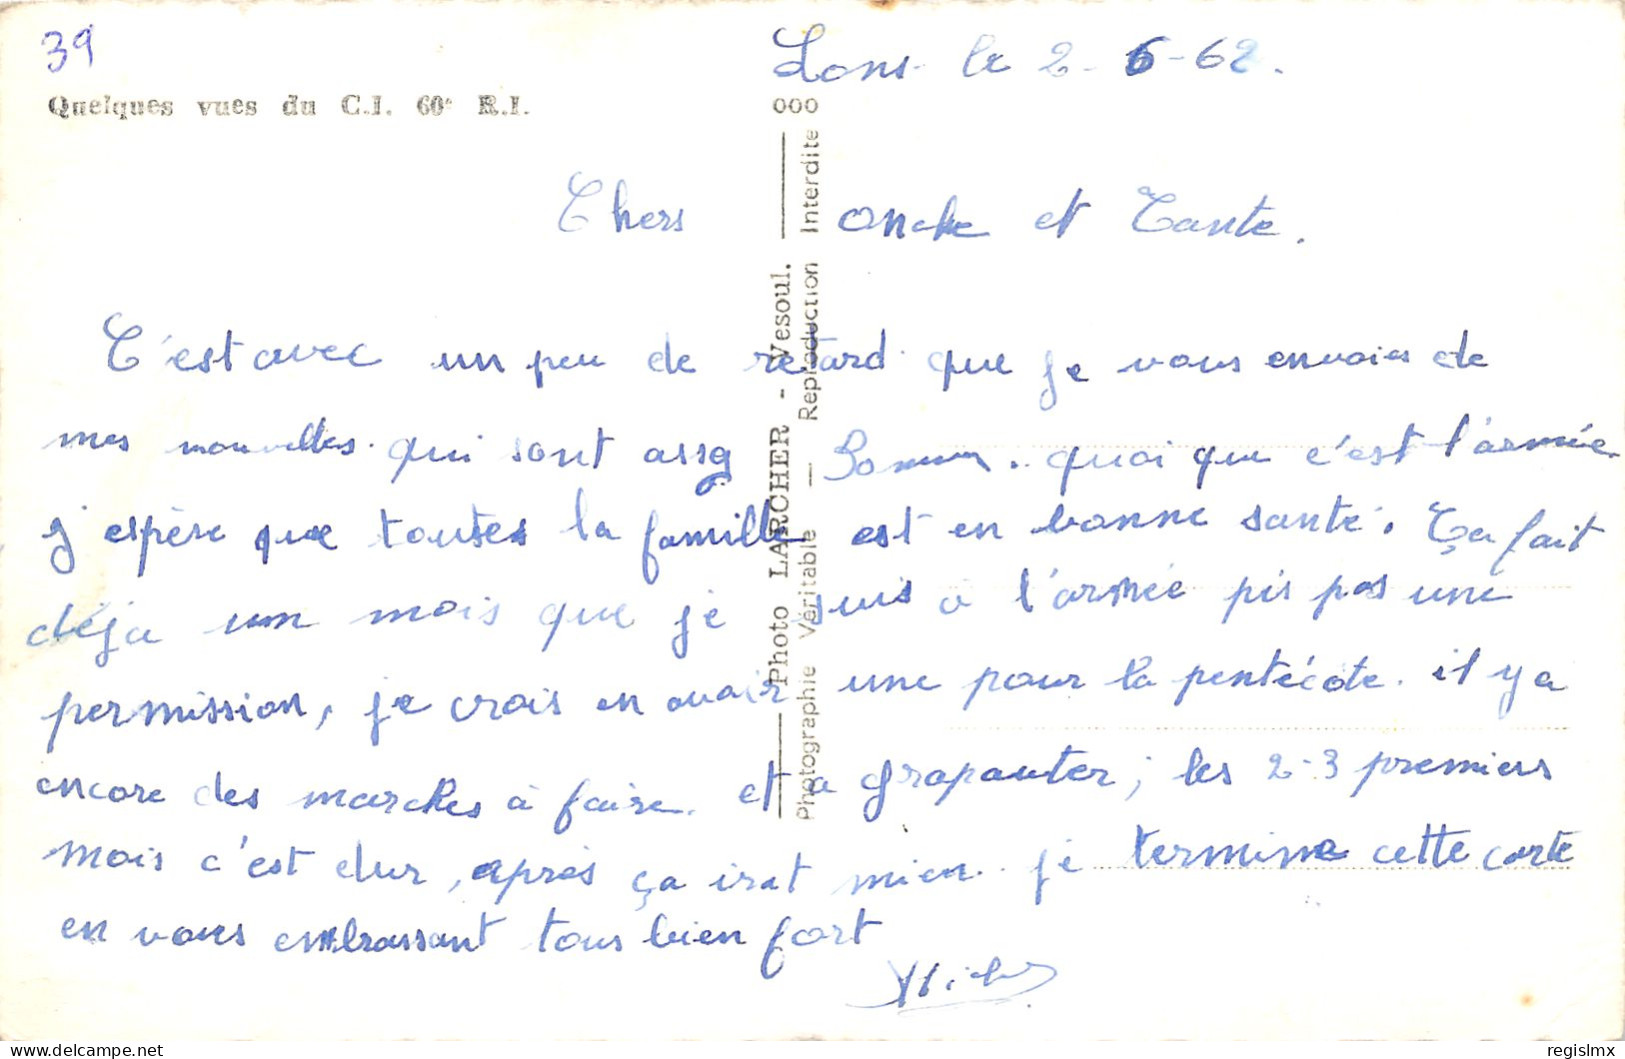 39
Lons le 2-6-62.
Quelques vues du C.I. 60e R.I.
ooo
Chers oncle et Tante.
C'est avec un peu de retard que je vous envoies de
mes nouvelles. qui sont assg Bonnes. quoi que c'est l'armée
j'espère que toutes la famille est en bonne santé. Ça fait
déja um mois que je suis a l'armée pis pas une
permission, je crois en avoir une pour la pentécôte. il y a
encore des marches à faire. et a grapauter; les 2-3 premiers
mois c'est dur, après ça irat mien. je termine cette carte
en vous embrassant tous bien fort
Photo LARCHER - Vesoul.
Photographie Véritable — Reproduction Interdite
delcampe.net
regislmx